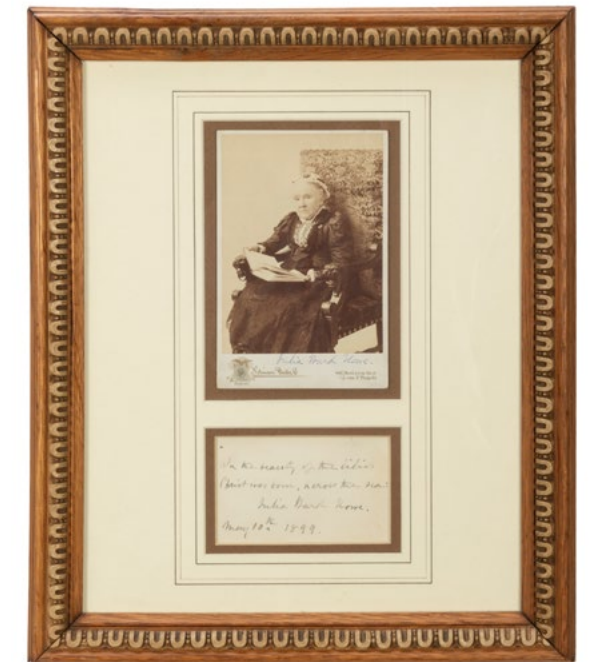 Julia Ward Howe.
In the beauty of the lilies
Christ was born, across the sea.
Julia Ward Howe.
May 10th. 1899.